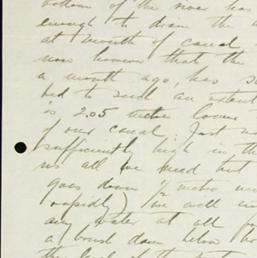 bottom of the river has
enough to drain the
at mouth of canal
now however that the
a month ago, has
bed to such an extent
is 2.05 metre lower
of our canal. Just
sufficiently high in the
us all we need but
goes down
rapidly) we will
any water at all
a brush dam below
the level of the